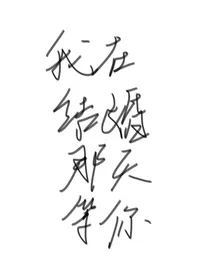 我在
结婚
那天
等你